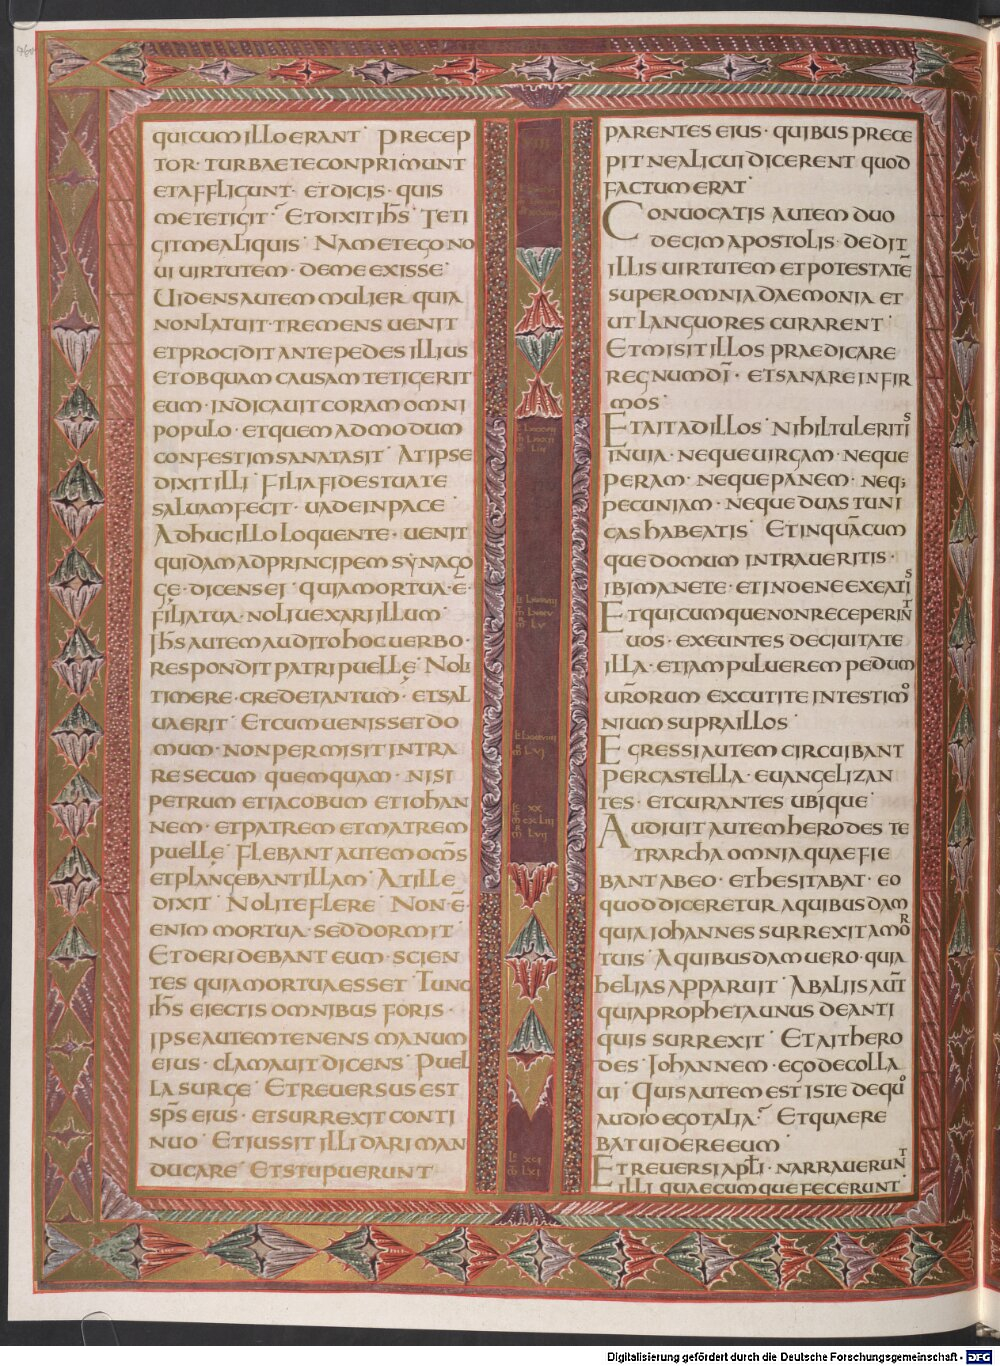 QUICUMILLOERANT· PRECEP
TOR· TURBAETECONPRIMUNT
ETAFFLIGUNT· ETDICIS· QUIS
METETIGIT· ETDIXITIHS̄· TETI
GITMEALIQUIS· NAMETEGONO
UIUIRTUTEM· DEMEEXISSE·
UIDENSAUTEMMULIER QUIA
NONLATUIT· TREMENS UENIT
ETPROCIDITANTEPEDESILLIUS
ETOBQUAMCAUSAMTETIGERIT
EUM· INDICAUITCORAMOMNI
POPULO· ETQUEMADMODUM
CONFESTIMSANATASIT· ATIPSE
DIXITILLI· FILIAFIDESTUATE
SALUAMFECIT· UADEINPACE·
ADHUCILLOLOQUENTE· UENIT
QUIDAMADPRINCIPEMSYNAGO
GĘ· DICENSEI· QUIAMORTUA· Ē·
FILIATUA· NOLIUEXARIILLUM·
IHS̄AUTEMAUDITOHOCUERBO·
RESPONDITPATRIPUELLĘ· NOLI
TIMERE· CREDETANTUM· ETSAL
UAERIT· ETCUMUENISSETDO
MUM· NONPERMISITINTRA
RESECUM QUEMQUAM· NISI
PETRUM ETIACOBUM ETIOHAN
NEM· ETPATREMETMATREM
PUELLĘ· FLEBANTAUTEMOMS̄
ETPLANGEBANTILLAM· ATILLE
DIXIT· NOLITEFLERE· NON· Ē·
ENIM MORTUA· SEDDORMIT·
ETDERIDEBANTEUM· SCIEN
TES QUIAMORTUAESSET· TUNC
IHS̄ EIECTISOMNIBUS FORIS·
IPSEAUTEMTENENS MANUM
EIUS· CLAMAUITDICENS· PUEL
LASURGE· ETREUERSUSEST
SPS̄ EIUS· ETSURREXITCONTI
NUO· ETIUSSITILLIDARIMAN
DUCARE· ETSTUPUERUNT
VIII
LXXXVII
LIII
LV
LXXXVIIII
LVI
XX
CXLIII
LVII
XCI
LXI
PARENTESEIUS· QUIBUSPRECE
PITNEALICUIDICERENT QUOD
FACTUMERAT·
CONUOCATIS AUTEM DUO
DECIMAPOSTOLIS· DEDIT
ILLIS UIRTUTEM ETPOTESTATĒ
SUPEROMNIADAEMONIA ET
UTLANGUORES CURARENT·
ETMISITILLOS PRAEDICARE
REGNUMDĪ· ETSANAREINFIR
MOS·
ETAITADILLOS· NIHILTULERITIS
INUIA· NEQUEUIRGAM· NEQUE
PERAM· NEQUEPANEM· NEQ;
PECUNIAM· NEQUEDUASTUNI
CASHABEATIS· ETINQUĀCUM
QUEDOMUM INTRAUERITIS·
IBIMANETE· ETINDENEEXEATIS
ETQUICUMQUENONRECEPERINT
UOS· EXEUNTES DECIUITATE
ILLA· ETIAMPULUEREM PEDUM
UR̄ORUM EXCUTITE INTESTIMO
NIUM SUPRAILLOS·
EGRESSIAUTEMCIRCUIBANT
PERCASTELLA· EUANGELIZAN
TES· ETCURANTES UBIQUE·
AUDIUITAUTEMHERODES TE
TRARCHAOMNIAQUAEFIE
BANTABEO· ETHESITABAT· EO
QUODDICERETUR AQUIBUSDAM
QUIAIOHANNES SURREXITAMOR
TUIS· AQUIBUSDAMUERO· QUIA
HELIASAPPARUIT· ABALIISAUT̄
QUIAPROPHETAUNUS DEANTI
QUIS SURREXIT· ETAITHERO
DES· IOHANNEM· EGODECOLLA
UI· QUISAUTEMESTISTE DEQUO
AUDIOEGOTALIA· ETQUAERE
BATUIDEREEUM·
ETREUERSIAPLĪ· NARRAUERUNT
ILLI QUAECUMQUEFECERUNT·
Digitalisierung gefördert durch die Deutsche Forschungsgemeinschaft - DFG